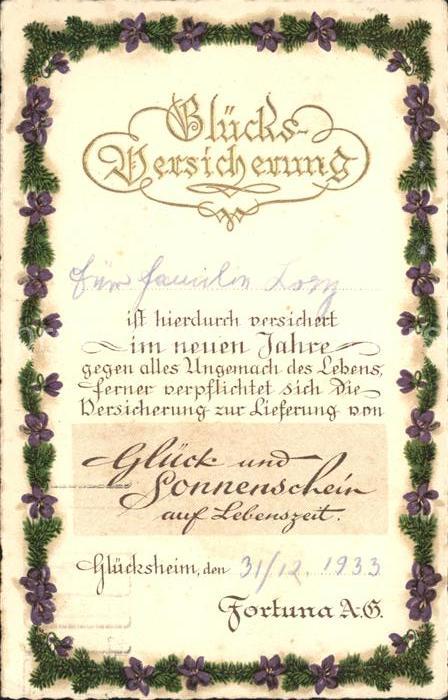 Glücks-
Versicherung
Für Familie
ist hierdurch versichert
im neuen Jahre
gegen alles Ungemach des Lebens,
ferner verpflichtet sich die
Versicherung zur Lieferung von
Glück und
Sonnenschein
auf Lebenszeit.
Glücksheim, den 31/12. 1933
Fortuna A.G.